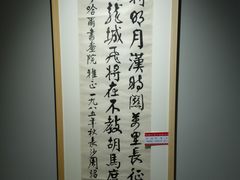 時明月漢時關萬里長征
龍城飛將在不教胡馬度
哈爾書畫院 雅正 一九八五年秋長沙周紹